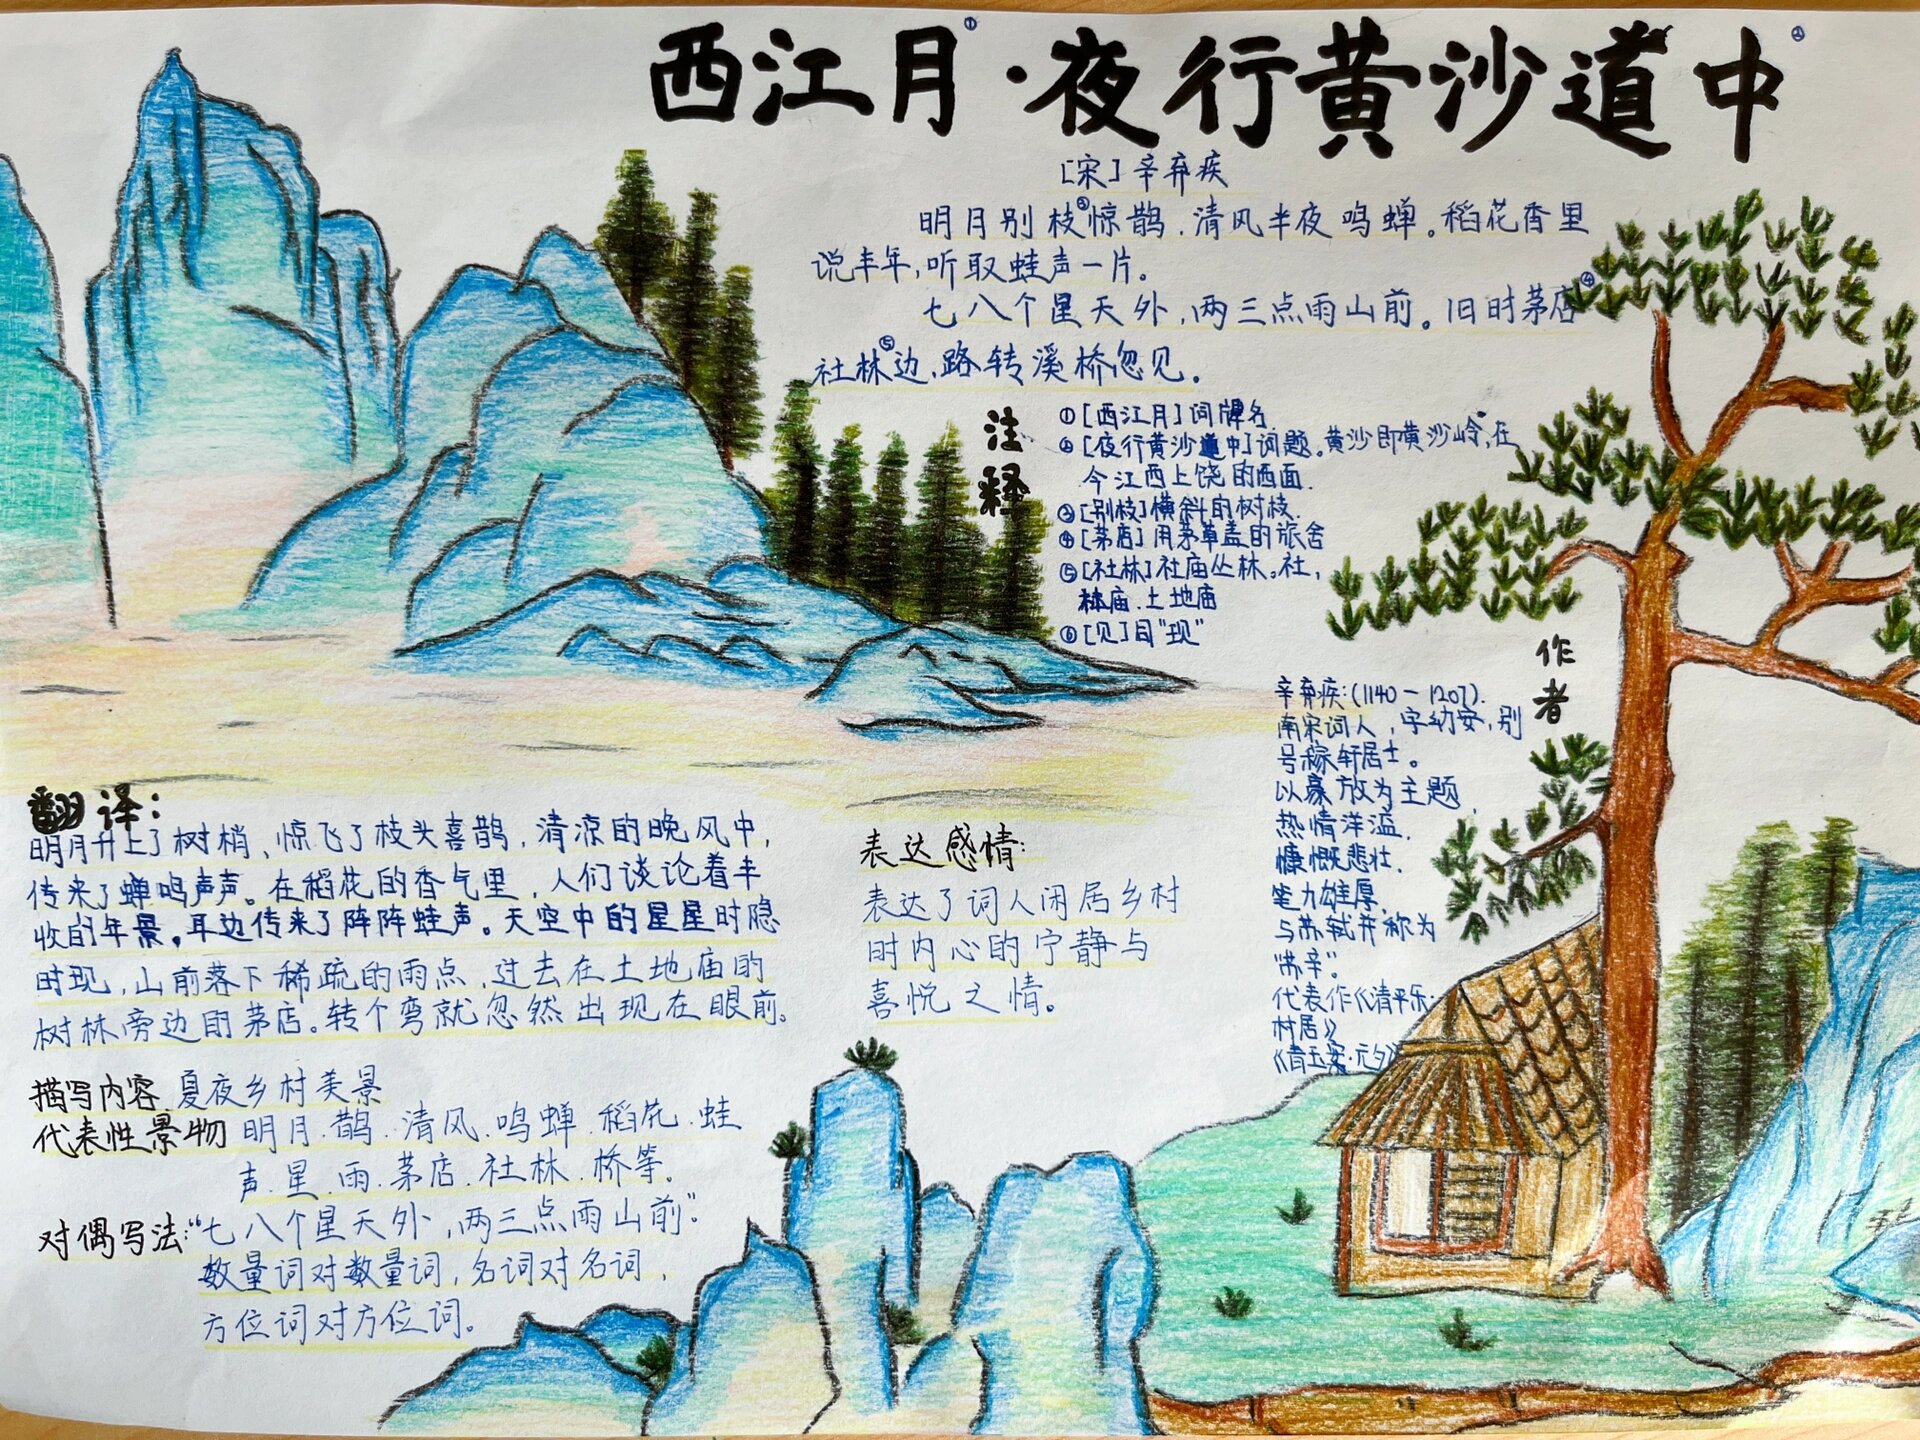 西江月①·夜行黄沙道中②
[宋] 辛弃疾
明月别枝③惊鹊.清风半夜鸣蝉。稻花香里
说丰年,听取蛙声一片。
七八个星天外,两三点雨山前。旧时茅店④
社林⑤边,路转溪桥忽见.
注释
①[西江月]词牌名.
②[夜行黄沙道中]词题。黄沙即黄沙岭,在
今江西上饶的西面.
③[别枝]横斜的树枝.
④[茅店]用茅草盖的旅舍
⑤[社林]社庙丛林。社,
林庙.土地庙
⑥[见]同“现”
作者
辛弃疾:(1140-1207).
南宋词人,字幼安,别
号稼轩居士。
以豪放为主题,
热情洋溢.
慷慨悲壮.
笔力雄厚.
与苏轼并称为
“苏辛”。
代表作《清平乐·
村居》
《青玉案·元夕》
翻译:
明月升上了树梢、惊飞了枝头喜鹊,清凉的晚风中,
传来了蝉鸣声声。在稻花的香气里,人们谈论着丰
收的年景。耳边传来了阵阵蛙声。天空中的星星时隐
时现,山前落下稀疏的雨点,过去在土地庙的
树林旁边的茅店。转个弯就忽然出现在眼前。
表达感情:
表达了词人闲居乡村
时内心的宁静与
喜悦之情。
描写内容 夏夜乡村美景
代表性景物 明月.鹊.清风.鸣蝉.稻花.蛙
声.星.雨.茅店.社林.桥等。
对偶写法:“七八个星天外,两三点雨山前”.
数量词对数量词,名词对名词,
方位词对方位词。